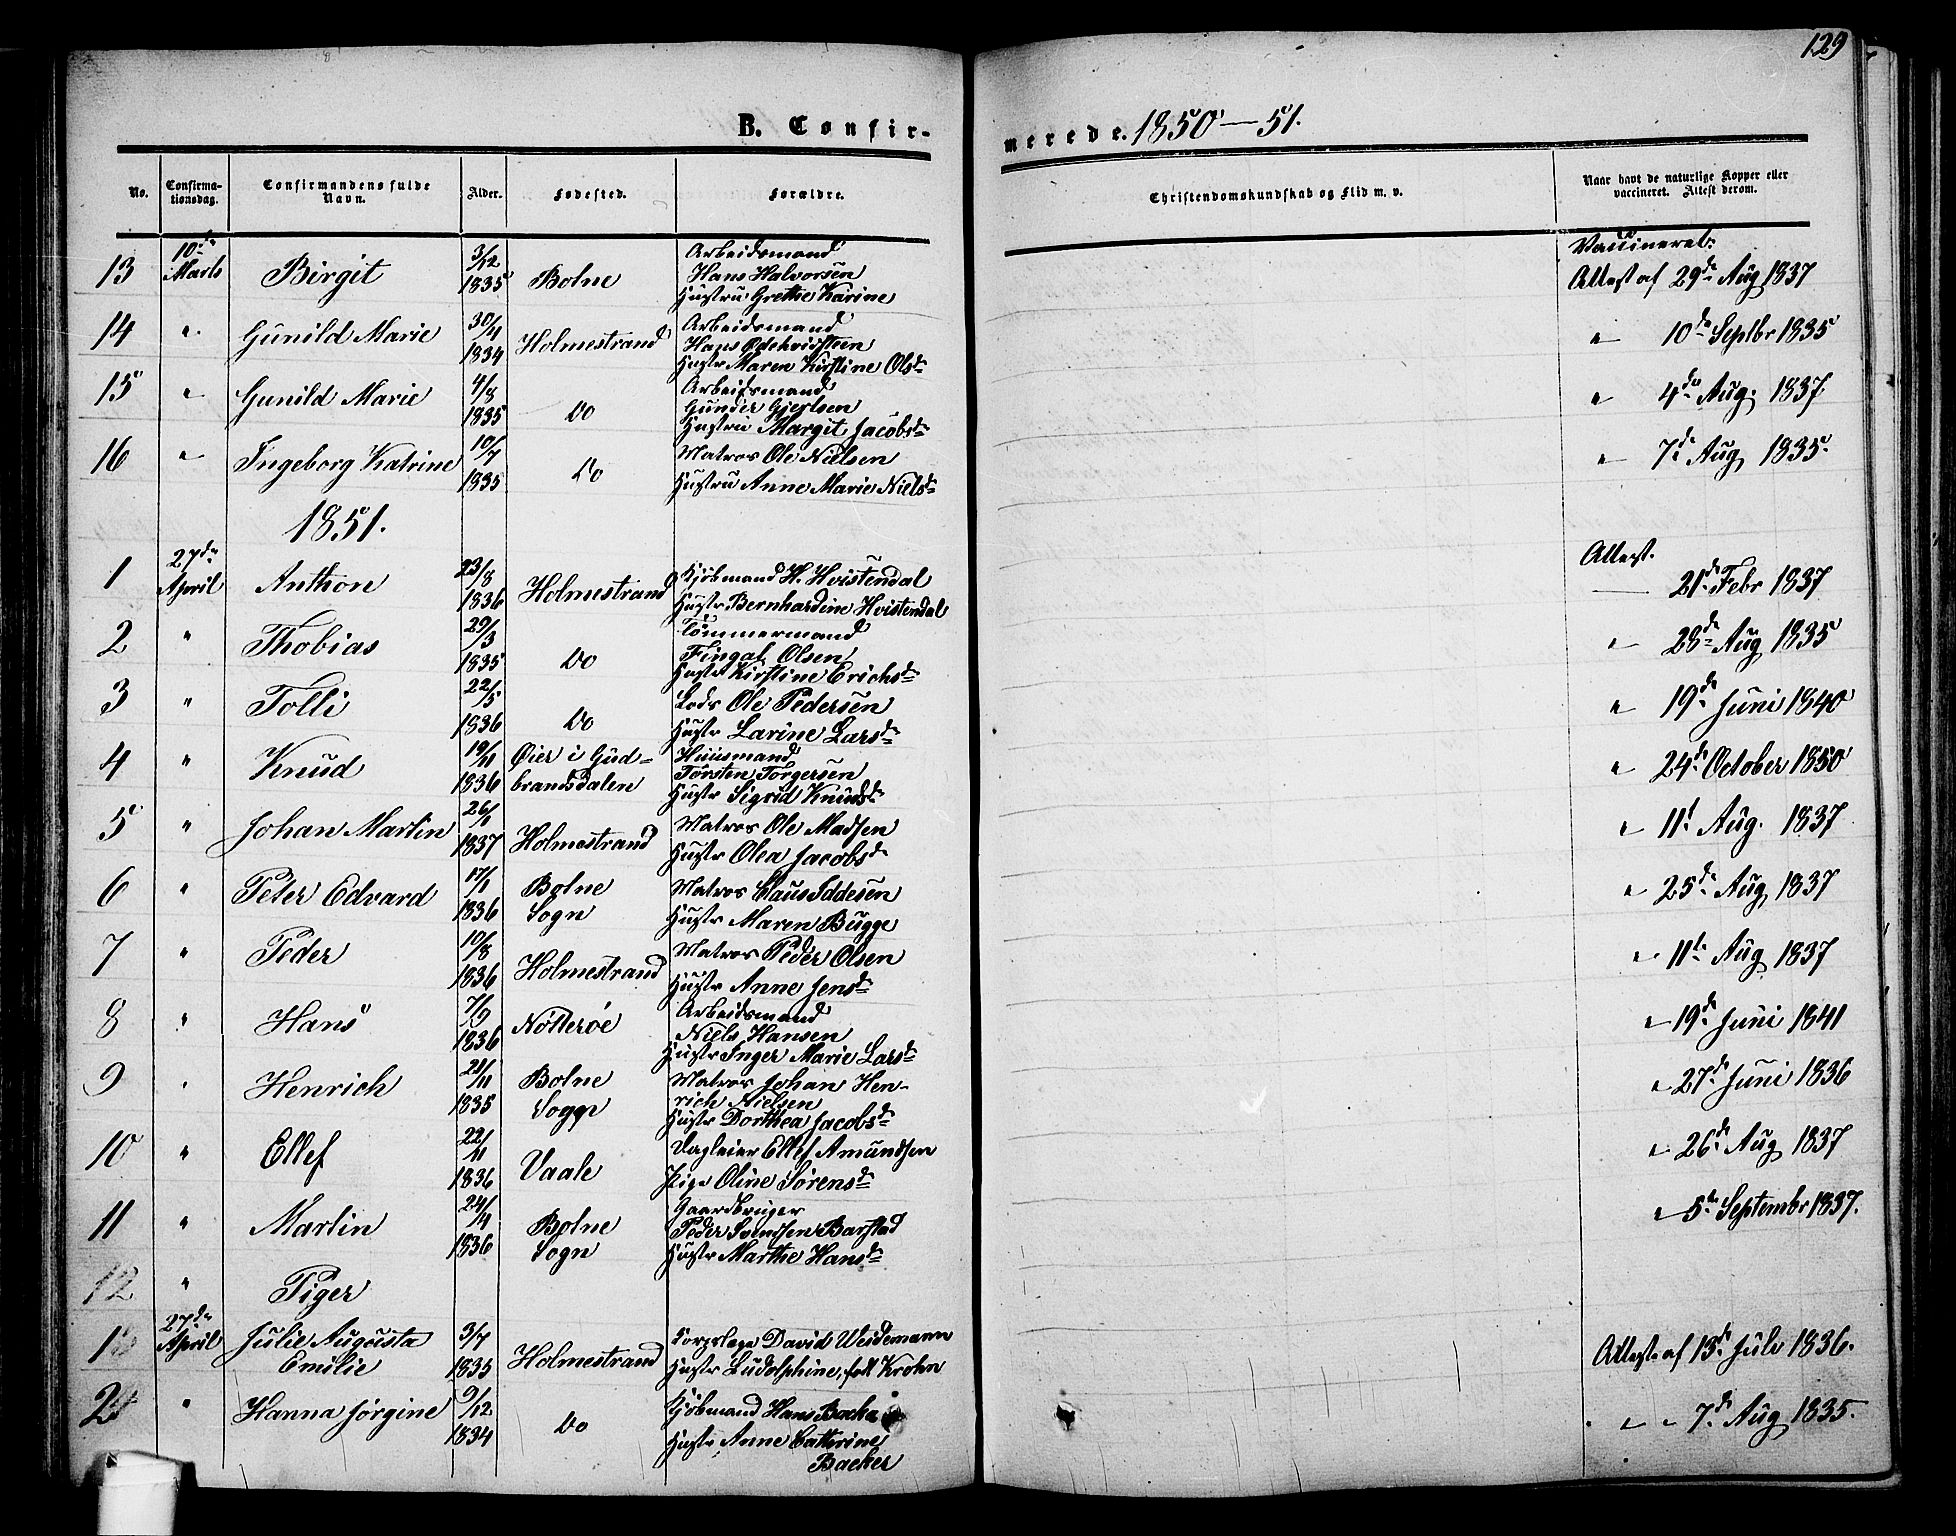 129
B. Confirmerede. 1850–51.
No. Confirmationsdag. Confirmandens fulde Navn. Alder. Fødested. Forældre. Christendomskundskab og Flid m. v. Naar havt de naturlige Kopper eller vaccineret. Attest derom.
13 10de Marts Birgit 3/12 1835 Botne Arbeidsmand Hans Halvorsen Hustru Grethe Karine Vaccineret: Attest af 29de Aug 1837
14 " Gunild Marie 30/11 1834 Holmestrand Arbeidsmand Hans Hustr Maren Kirstine Olsd. " 10de Septbr 1835
15 " Gunild Marie 4/8 1835 Do Arbeidsmand Gunder Gjertsen Hustru Margit Jacobsd. " 4de Aug. 1837
16 " Ingeborg Katrine 10/7 1835 Do Matros Ole Nielsen Hustru Anne Marie Nielsd. " 7de Aug 1835.
1851.
1 27de April Anthon 23/8 1836 Holmestrand Kjøbmand H. Hvistendal Hustr Bernhardine Hvistendal Attest. — 21de Febr 1837
2 " Thobias 29/3 1835 Do Tømmermand Fingal Olsen Hustr Kirstine Erichsd. " 28de Aug 1835
3 " Tolli 22/5 1836 Do Lods Ole Pedersen Hustr Larine Larsd. " 19de Juni 1840
4 " Knud 19/11 1836 Øier i Gudbrandsdalen Huusmand Torsten Torgersen Hustr Sigrid Knudsd. " 24de October 1850
5 " Johan Martin 26/1 1837 Holmestrand Matros Ole Madsen Hustr Olea Jacobsd. " 11te Aug. 1837
6 " Peter Edvard 17/1 1836 Botne Sogn Matros Claus Iddesen Hustr Maren Bugge " 25de Aug 1837
7 " Peder 10/8 1836 Holmestrand Matros Peder Olsen Hustr Anne Jensd. " 11te Aug 1837
8 " Hans 7/9 1836 Nøtterøe Arbeidsmand Niels Hansen Hustr Inger Marie Larsd. " 19de Juni 1841
9 " Henrich 21/11 1835 Botne Sogn Matros Johan Henrich Nielsen Hustr Dorthea Jacobsd. " 27de Juni 1836
10 " Ellef 22/11 1836 Vaale Dagleier Ellef Amundsen Pige Oline Sørensd. " 26de Aug 1837
11 " Martin 24/4 1836 Botne Sogn Gaardbruger Peder Svendsen Barstad Hustr Marthe Hansd. " 5te Septembr 1837.
12 " Piger
1 27de April Julie Augusta Emilie 3/7 1835 Holmestrand Korpslæge David Weidemann Hustr Ludolphine, født Krohn Attest af 13de Juli 1836.
2 " Hanna Jørgine 9/12 1834 Do Kjøbmand Hans Backe Hustr Anne Cathrine Backer " " 7de Aug 1835.